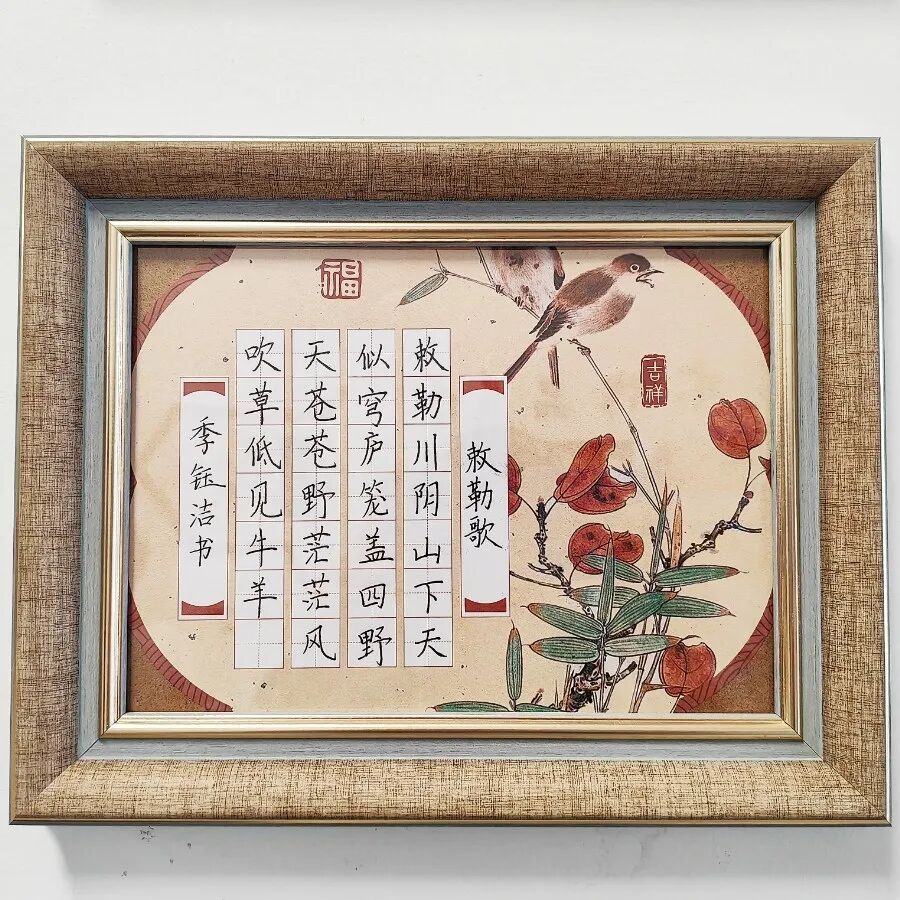 敕勒歌
敕勒川阴山下天
似穹庐笼盖四野
天苍苍野茫茫风
吹草低见牛羊
季钰洁书
福
吉祥